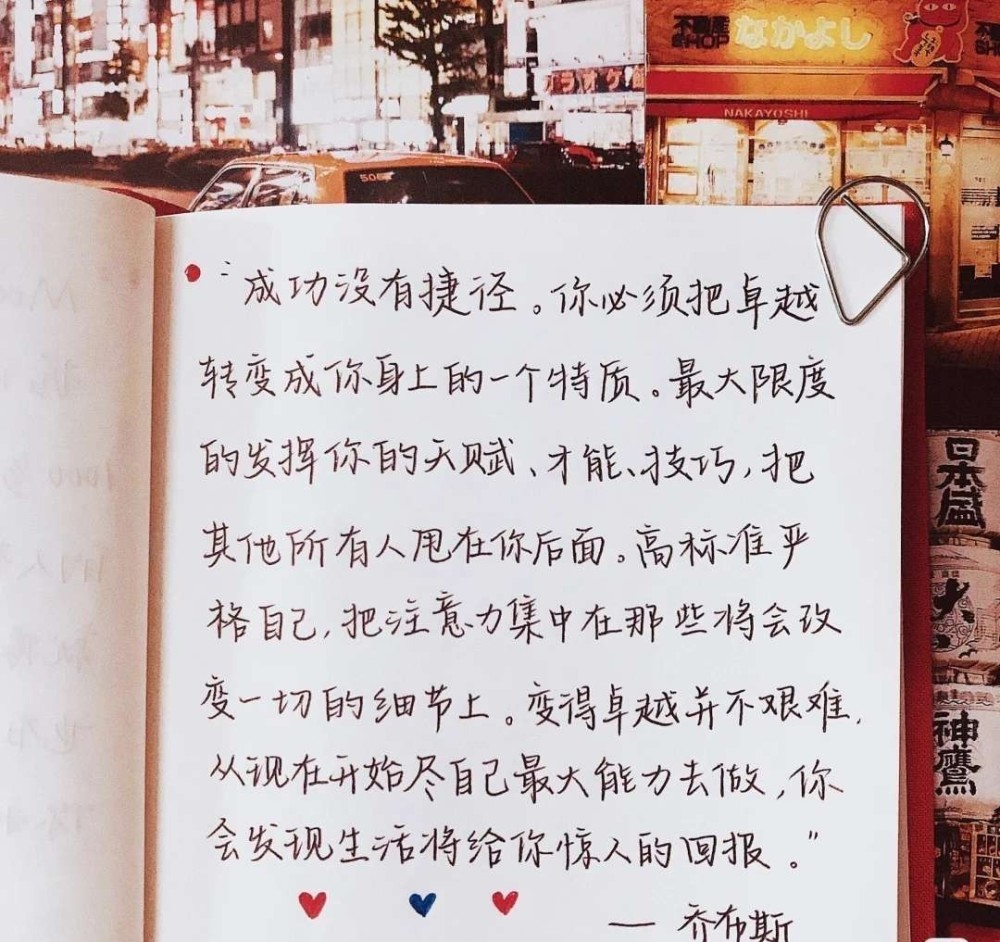 不動産
SHOP
なかよし
カラオケ館
NAKAYOSHI
506
“成功没有捷径。你必须把卓越
转变成你身上的一个特质。最大限度
的发挥你的天赋、才能、技巧,把
其他所有人甩在你后面。高标准严
格自己,把注意力集中在那些将会改
变一切的细节上。变得卓越并不艰难,
从现在开始尽自己最大能力去做,你
会发现生活将给你惊人的回报。”
— 乔布斯
日本盛
神鷹